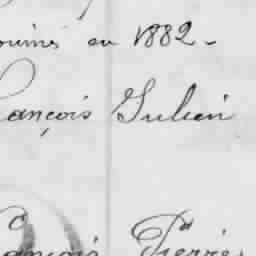 en 1882 -
François Julien
François Pierre